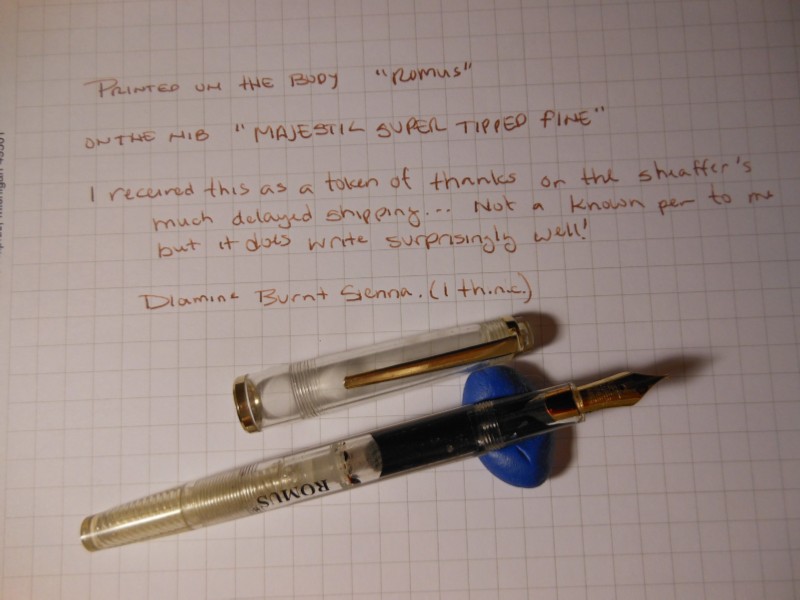 PRINTED ON THE BODY "ROMUS"
ON THE NIB "MAJESTIC SUPER TIPPED FINE"
I received this as a token of thanks on the sheaffer's
much delayed shipping... Not a known pen to me
but it does write surprisingly well!
Diamine Burnt Sienna. (I think)
ROMUS